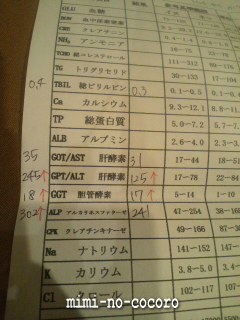 GLU 血糖
BUN 血中尿素窒素
CRE クレアチニン
NH₃ アンモニア
TCHO 総コレステロール
TG トリグリセリド 30−133 17−104
0.4 TBIL 総ビリルビン 0.3 0.1−0.5 0.1−0.
Ca カルシウム 9.3−12.1 8.8−11
TP 総蛋白質 5.0−7.2 5.7−7.
ALB アルブミン 2.6−4.0 2.3−3.
35 GOT/AST 肝酵素 31 17−44 18−51
245↑ GPT/ALT 肝酵素 125↑ 17−78 22−84
18↑ GGT 胆管酵素 17↑ 5−14 1−10
302↑ ALP アルカリホスファターゼ 241 47−254 38−165
CPK クレアチンキナーゼ 49−166 87−
Na ナトリウム 141−152 147−
K カリウム 3.8−5.0 3.4−
Cl クロール 102−117 107−
mimi-no-cocoro